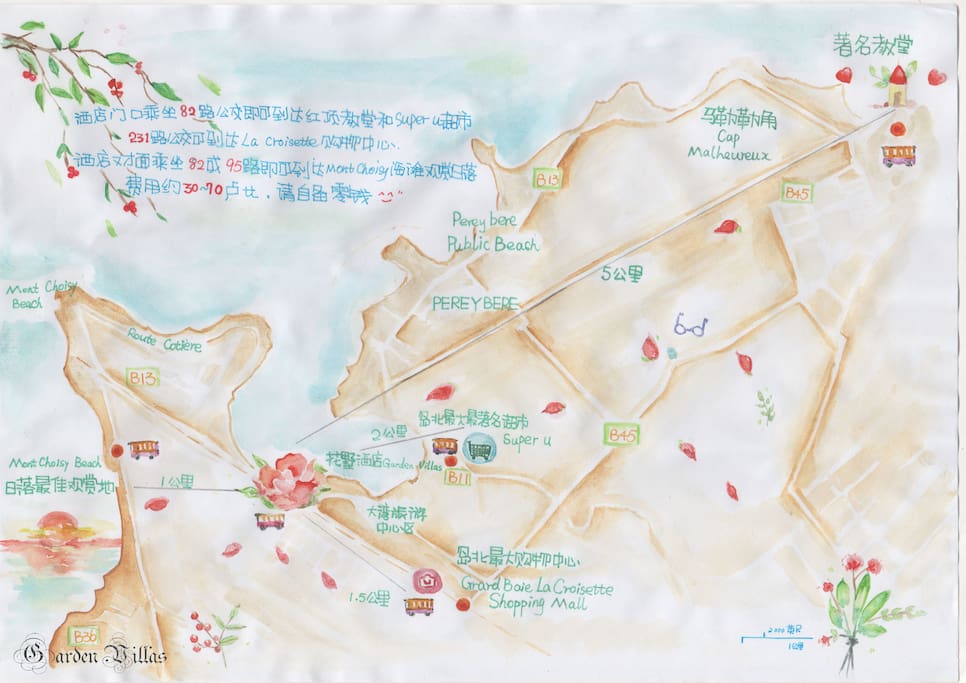 酒店门口乘坐82路公交即可到达红顶教堂和Super u超市
231路公交可到达La Croisette购物中心.
酒店对面乘坐82或95路即可到达Mont Choisy海滩观赏日落
费用约30~70卢比，请自备零钱
著名教堂
马勒勒角
Cap
Malheureux
B13
B45
Pereybere
Public Beach
5公里
PEREYBERE
Mont Choisy
Beach
Route Cotière
B13
岛北最大最著名超市
Super u
2公里
B45
花野酒店Garden Villas
B11
Mont Choisy Beach
日落最佳观赏地
1公里
大湾旅游
中心区
岛北最大购物中心
Grand Baie La Croisette
Shopping Mall
1.5公里
B36
Garden Villas
2000英尺
1公里